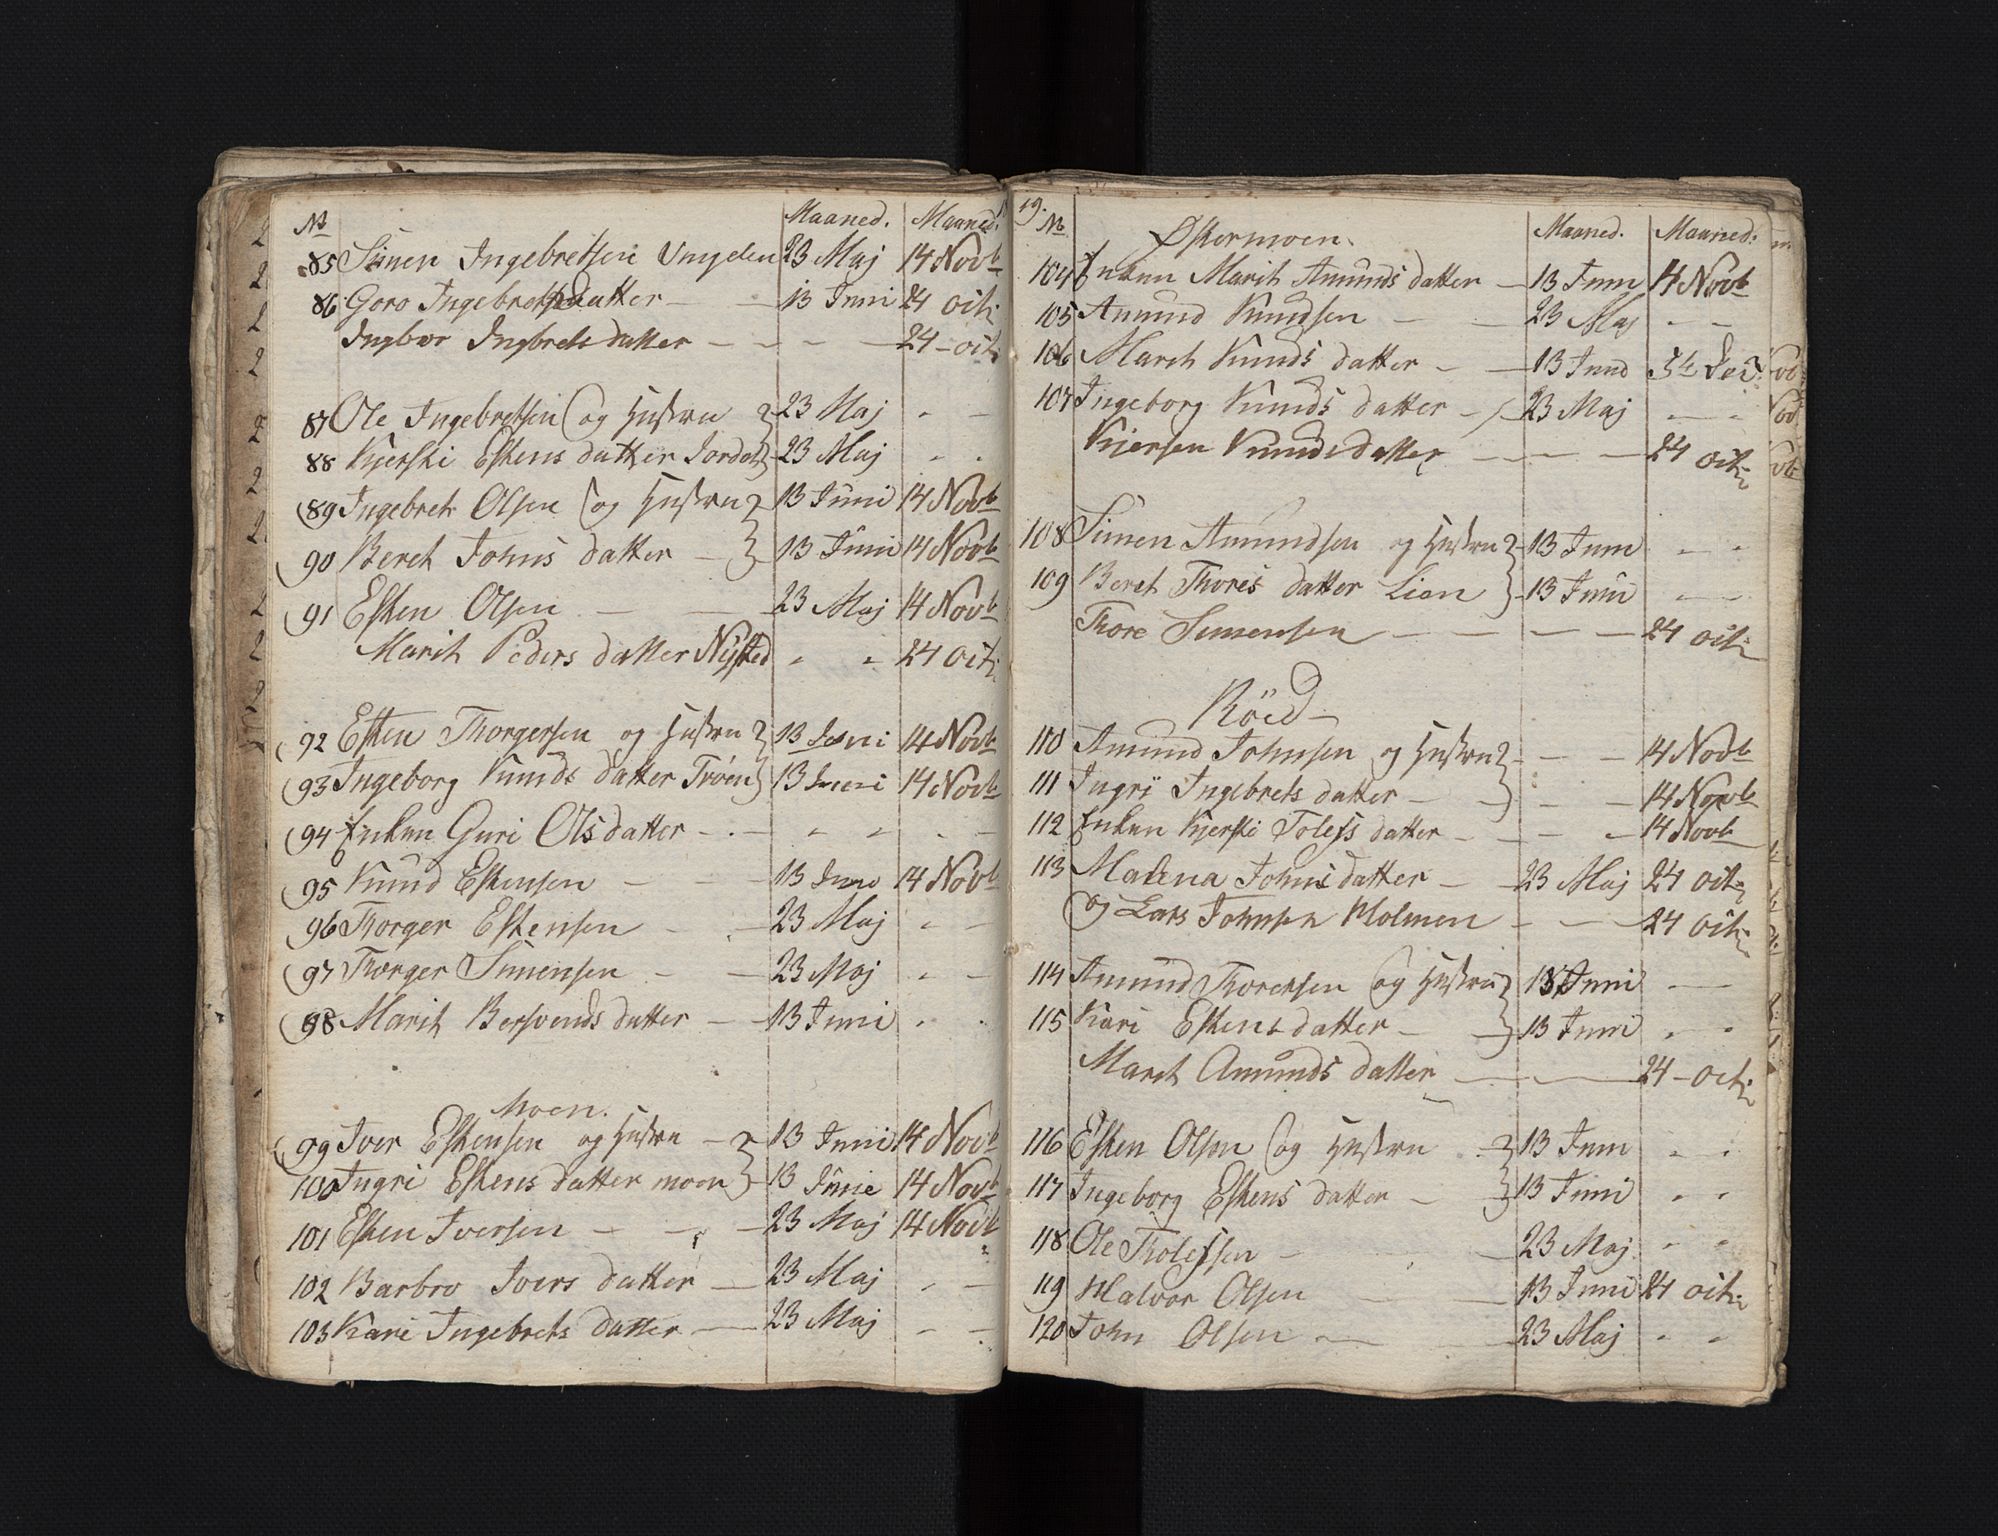 No Maaned. Maaned.
85 Simen Ingebretsen Ungelen 23 Maj 14 Novb
86 Goro Ingebretsdatter - - 13 Juni 24 oct:
Ingbor Ingbrets datter - - - - 24 - oct:
87 Ole Ingebretsen og Hustru } 23 Maj - -
88 Kjersti Estens datter Jordet } 23 Maj - -
89 Ingebret Olsen og Hustru } 13 Juni 14 Novb
90 Beret Johns datter - } 13 Juni 14 Novb
91 Esten Olsen - - 23 Maj 14 Novb
Marit Peders datter Nysted - - 24 oct:
92 Esten Thorgersen og Hustru } 13 Juni 14 Novb
93 Ingeborg Knuds datter Trøen } 13 Juni 14 Novb
94 Enken Guri Ols datter - - - - - -
95 Knud Estensen - - 13 Juni 14 Novb
96 Thorger Estensen - - 23 Maj - -
97 Thorger Simensen - - 23 Maj - -
98 Marit Bersvends datter - 13 Juni - -
Moen.
99 Iver Estensen og Hustru - } 13 Juni 14 Novb
100 Ingri Estens datter moen } 13 Junie 14 Novb
101 Esten Iversen - - - 23 Maj 14 Novb
102 Barbro Ivers datter - 23 Maj - -
103 Kari Ingebrets datter - 23 Maj - -
19.
No Maaned. Maaned.
Østermoen.
104 Enken Marit Amunds datter - 13 Juni 14 Novb
105 Amund Knudsen - - 23 Maj - -
106 Marit Knuds datter - - 13 Juni
107 Ingeborg Knuds datter - - 23 Maj - -
Kjersten Knudsdatter - - - 24 oct:
108 Simen Amundsen og Hustru } 13 Juni - -
109 Beret Thores datter Lien } 13 Juni - -
Thore Simensen - - - - 24 oct:
Röed
110 Amund Johnsen og Hustru } - - - 14 Novb
111 Ingri Ingebrets datter - - } - - 14 Novb
112 Enken Kjersti Tolefs datter - - - 14 Novb
113 Malena Johns datter - - 23 Maj 24 oct:
og Lars Johnsen Holmen - - - 24 oct:
114 Amund Thoresen og Hustru } 13 Juni - -
115 Kari Estens datter - - } 13 Juni - -
Marit Amunds datter - - - 24 - oct:
116 Esten Olsen og Hustru - } 13 Juni - -
117 Ingeborg Estens datter - } 13 Juni - -
118 Ole Tholefsen - - 23 Maj - -
119 Halvor Olsen - - 13 Juni 24 oct:
120 John Olsen - - 23 Maj - -